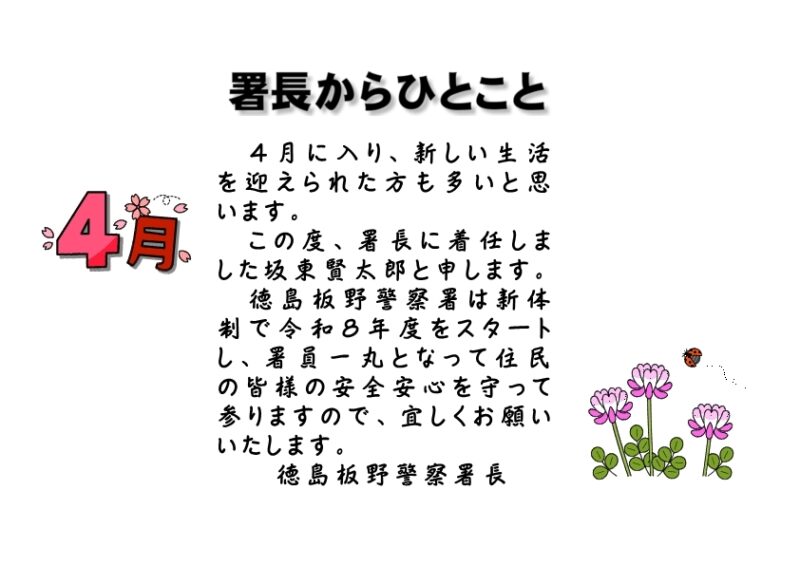 署長からひとこと
4月
４月に入り、新しい生活
を迎えられた方も多いと思
います。
この度、署長に着任しま
した坂東賢太郎と申します。
徳島板野警察署は新体
制で令和８年度をスタート
し、署員一丸となって住民
の皆様の安全安心を守って
参りますので、宜しくお願い
いたします。
徳島板野警察署長